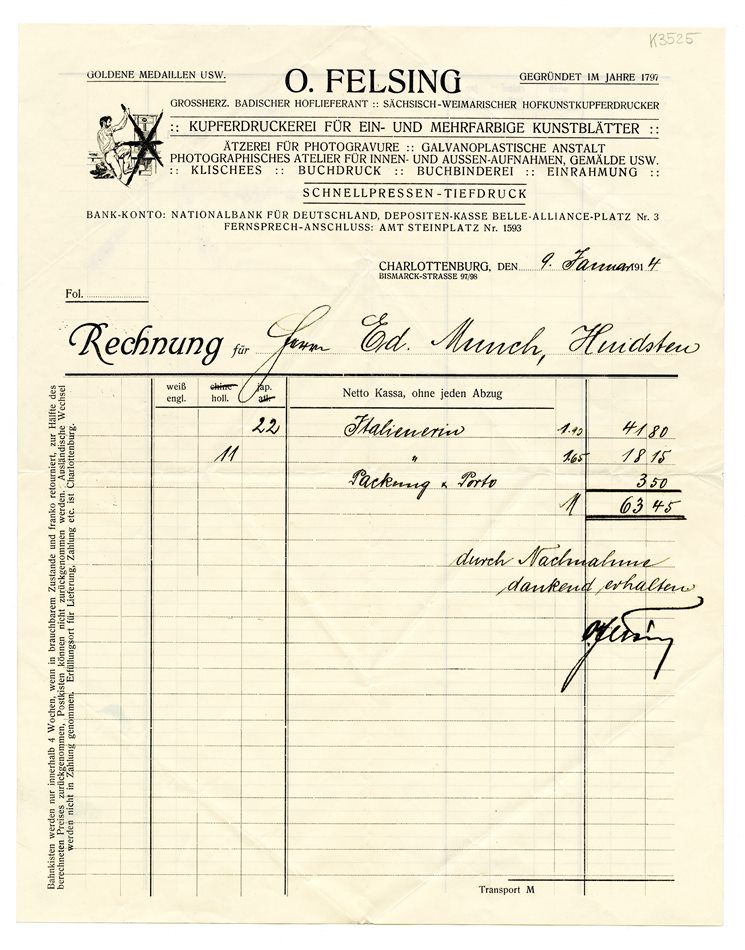 K3525
GOLDENE MEDAILLEN USW.
O. FELSING
GEGRÜNDET IM JAHRE 1797
GROSSHERZ. BADISCHER HOFLIEFERANT :: SÄCHSISCH-WEIMARISCHER HOFKUNSTKUPFERDRUCKER
:: KUPFERDRUCKEREI FÜR EIN- UND MEHRFARBIGE KUNSTBLÄTTER ::
ÄTZEREI FÜR PHOTOGRAVURE :: GALVANOPLASTISCHE ANSTALT
PHOTOGRAPHISCHES ATELIER FÜR INNEN- UND AUSSEN-AUFNAHMEN, GEMÄLDE USW.
:: KLISCHEES :: BUCHDRUCK :: BUCHBINDEREI :: EINRAHMUNG ::
SCHNELLPRESSEN-TIEFDRUCK
BANK-KONTO: NATIONALBANK FÜR DEUTSCHLAND, DEPOSITEN-KASSE BELLE-ALLIANCE-PLATZ Nr. 3
FERNSPRECH-ANSCHLUSS: AMT STEINPLATZ Nr. 1593
CHARLOTTENBURG, DEN 9. Januar 1914
BISMARCK-STRASSE 97/98
Fol.
Rechnung für Herrn Ed. Munch, Hvidsten
weiß engl. chine holl. jap. atl. Netto Kassa, ohne jeden Abzug
22 Italienerin 1.90 41 80
11 " 1.65 18 15
Packung & Porto 3 50
M 63 45
durch Nachnahme
dankend erhalten
O. Felsing
Transport M
Bahnkisten werden nur innerhalb 4 Wochen, wenn in brauchbarem Zustande und franko retourniert, zur Hälfte des
berechneten Preises zurückgenommen, Postkisten können nicht zurückgenommen werden. Ausländische Wechsel
werden nicht in Zahlung genommen. Erfüllungsort für Lieferung, Zahlung etc. ist Charlottenburg.